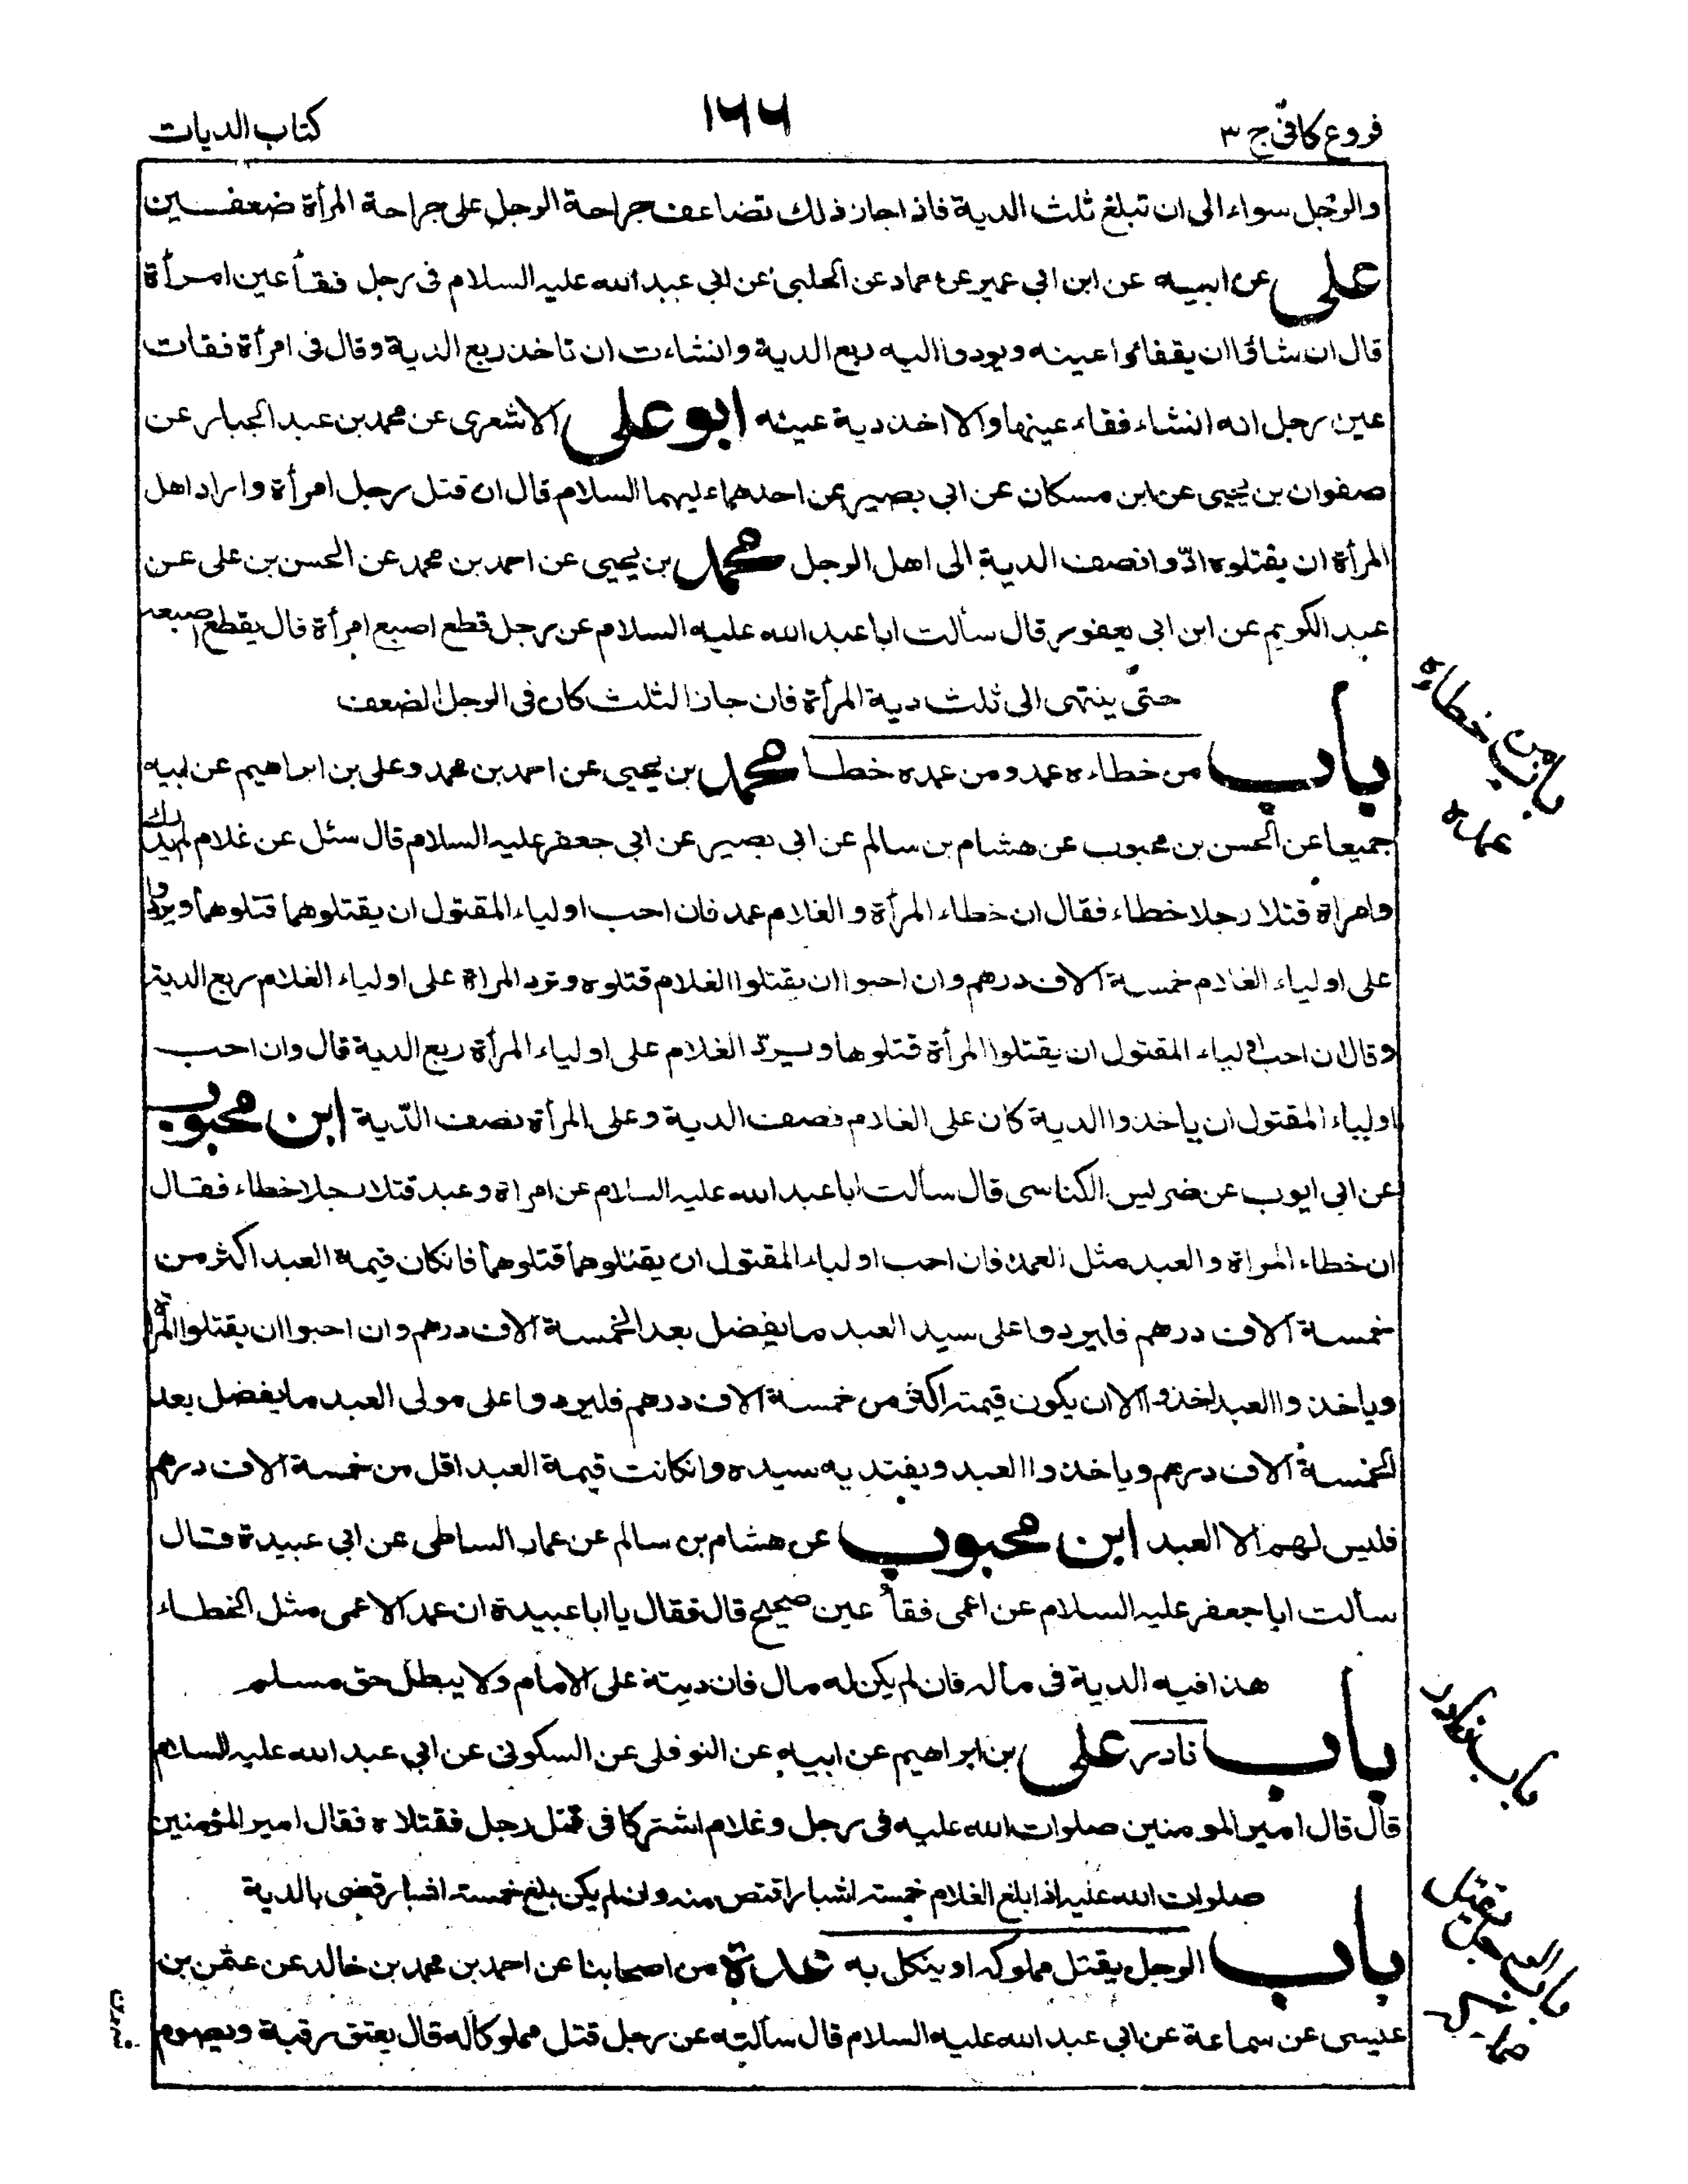 فروع كافى ج ٣
١٦٦
كتاب الديات
والرجل سواء الى ان تبلغ ثلث الدية فاذا جاز ذلك تضاعف جراحة الرجل على جراحة المرأة ضعفين
على عن ابيه عن ابن ابي عمير عن حماد عن الحلبي عن ابي عبد الله عليه السلام فى رجل فقأ عين امرأة
قال ان شاؤا ان يفقاؤا عينه ويردوا اليه ربع الدية وانشاءت ان تاخذ ربع الدية وقال فى امرأة فقات
عين رجل انه انشاء فقاء عينها والا اخذ دية عينه ابو على الاشعرى عن محمد بن عبد الجبار عن
صفوان بن يحيى عن ابن مسكان عن ابي بصير عن احدهما عليهما السلام قال ان قتل رجل امرأة واراد اهل
المرأة ان يقتلوه ادّوا نصف الدية الى اهل الرجل محمد بن يحيى عن احمد بن محمد عن الحسن بن على عن
عبد الكريم عن ابن ابي يعفور قال سألت ابا عبد الله عليه السلام عن رجل قطع اصبع امرأة قال يقطع اصبعه
حتى ينتهى الى ثلث دية المرأة فان جاز الثلث كان فى الرجل الضعف
باب من خطاءه عمد ومن عمده خطا محمد بن يحيى عن احمد بن محمد وعلى بن ابراهيم عن ابيه
باب من خطاءه
عمده
جميعا عن الحسن بن محبوب عن هشام بن سالم عن ابي بصير عن ابي جعفر عليه السلام قال سئل عن غلام لم يدرك
وامراة قتلا رجلا خطاء فقال ان خطاء المرأة والغلام عمد فان احب اولياء المقتول ان يقتلوهما قتلوهما ويردوا
على اولياء الغلام خمسة آلاف درهم وان احبوا ان يقتلوا الغلام قتلوه وترد المراة على اولياء الغلام ربع الدية
وقال ان احب اولياء المقتول ان يقتلوا المرأة قتلوها ويردّ الغلام على اولياء المرأة ربع الدية قال وان احب
اولياء المقتول ان ياخذوا الدية كان على الغلام نصف الدية وعلى المرأة نصف الدّية ابن محبوب
عن ابي ايوب عن ضريس الكناسى قال سألت ابا عبد الله عليه السلام عن امراة وعبد قتلا رجلا خطاء فقال
ان خطاء المراة والعبد مثل العمد فان احب اولياء المقتول ان يقتلوهما قتلوهما فانكان قيمة العبد اكثر من
خمسة آلاف درهم فليردوا على سيد العبد ما يفضل بعد الخمسة آلاف درهم وان احبوا ان يقتلوا المرأة
وياخذوا العبد اخذوا الا ان يكون قيمته اكثر من خمسة آلاف درهم فليردوا على مولى العبد ما يفضل بعد
الخمسة آلاف درهم وياخذوا العبد ويفتديه سيده وانكانت قيمة العبد اقل من خمسة آلاف درهم
فليس لهم الا العبد ابن محبوب عن هشام بن سالم عن عمار الساطى عن ابي عبيدة قال
سألت ابا جعفر عليه السلام عن اعمى فقأ عين صحيح قال فقال يا ابا عبيدة ان عمد الاعمى مثل الخطاء
هذا فيه الدية فى ماله فان لم يكن له مال فان ديته على الامام ولا يبطل حق مسلم
باب نادر على بن ابراهيم عن ابيه عن النوفلى عن السكونى عن ابي عبد الله عليه السلام
قال قال امير المومنين صلوات الله عليه فى رجل وغلام اشتركا فى قتل رجل فقتلاه فقال امير المؤمنين
صلوات الله عليه اذا بلغ الغلام خمسة اشبار اقتص منه وان لم يكن بلغ خمسة اشبار قضى بالدية
باب الرجل يقتل مملوكه او ينكل به عدة من اصحابنا عن احمد بن محمد بن خالد عن عثمن بن
عيسى عن سماعة عن ابي عبد الله عليه السلام قال سألته عن رجل قتل مملوكا له قال يعتق رقبة ويصوم